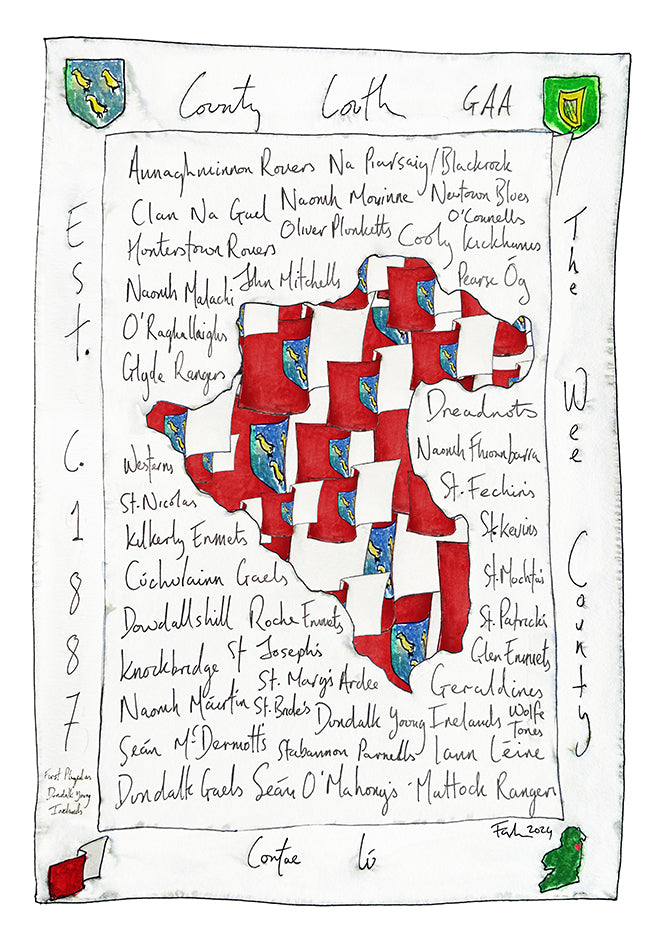 County Louth GAA
Annaghminnon Rovers Na Piarsaig/Blackrock
Clan Na Gael Naomh Moninne Newtown Blues
Oliver Plunketts O'Connells
Hunterstown Rovers Cooly Kickhams
Naomh Malachi John Mitchells Pearse Óg
O'Raghallaighs
Glyde Rangers
Dreadnots
Westerns Naomh Fhionnbarra
St. Nicolas St. Fechin's
Kilkerly Emmets St. Kevins
Cúchulainn Gaels St. Mochta's
Dowdallshill Roche Emmets St. Patrick's
Knockbridge St Joseph's Glen Emmets
St. Mary's Ardee Geraldines
Naomh Máirtín St. Bride's Dundalk Young Irelands Wolfe
Tones
Seán McDermott's Stabannon Parnells Lann Léire
Dundalk Gaels Seán O'Mahony's Mattock Rangers
Est. C. 1887
The Wee County
First Played as
Dundalk Young
Irelands
2024
Contae Lú